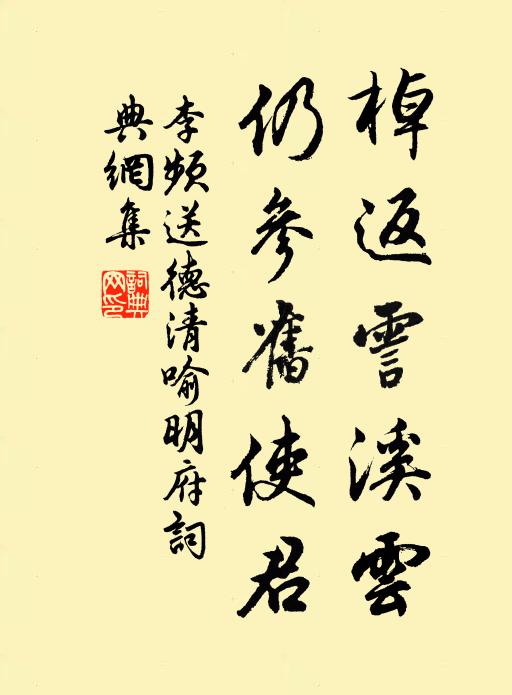 棹返霅溪雲
仍參舊使君
李頻送德清喻明府詞
典網集
詞典
網印